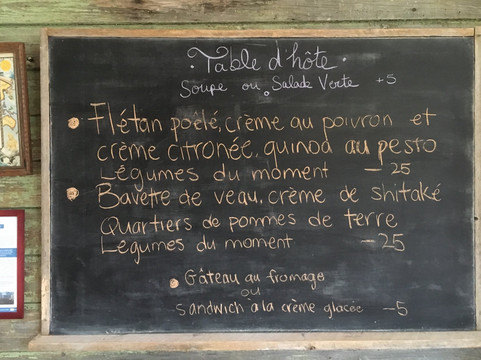 · Table d'hôte ·
Soupe ou Salade Verte +5
• Flétan poêlé, crème au poivron et
crème citronée, quinoa au pesto
Légumes du moment - 25
• Bavette de veau, crème de shitaké
Quartiers de pommes de terre
Légumes du moment - 25
• Gâteau au fromage
ou
sandwich à la crème glacée - 5